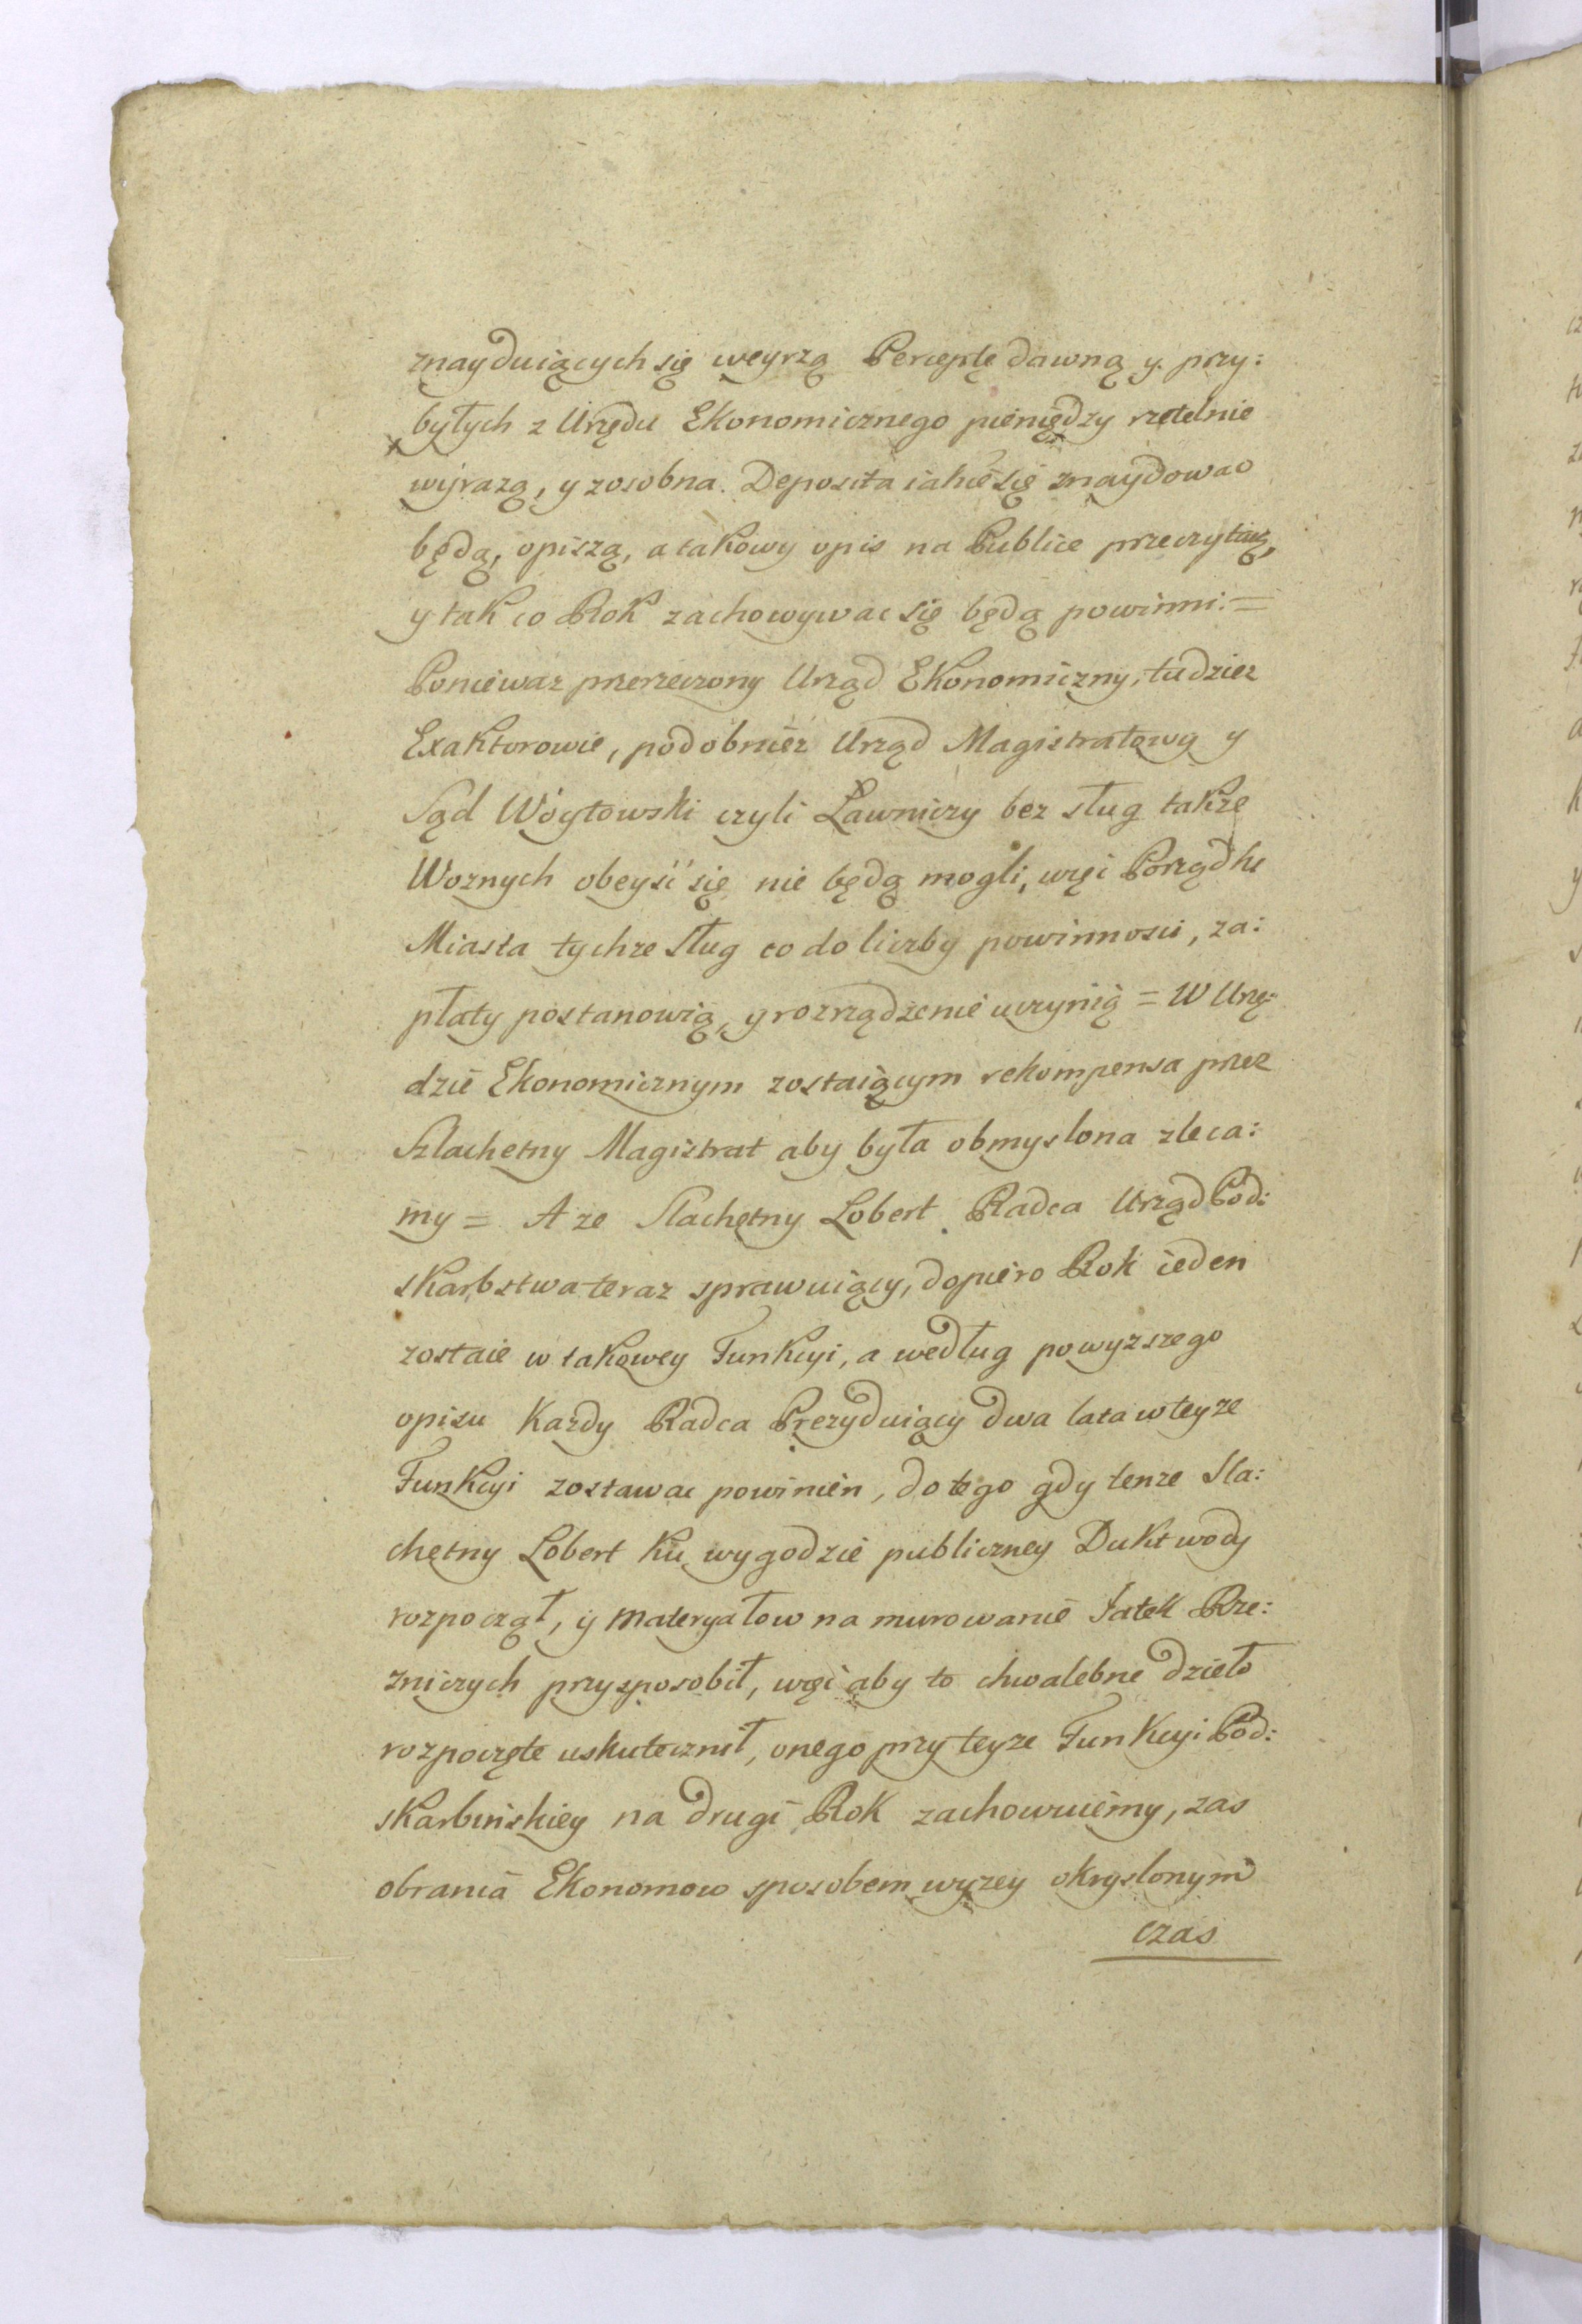 znayduiących się weyrzą Perceptę dawną y przy:
byłych z Urzędu Ekonomicznego pieniędzy rzetelnie
wyrazą, y zosobna. Deposita iakie się znaydowac
będą, opiszą, a takowy opis na Publice przeczytaią,
y tak co Rok zachowywac się będą powinni. =
Poniewaz przerzeczony Urząd Ekonomiczny, tudziez
Exaktorowie, podobniez Urząd Magistratowy y
Sąd Wóytowski czyli Ławniczy bez sług takze
Woznych obeyść się nie będą mogli, więc Porządki
Miasta tychze Sług co do liczby powinnosci, za:
płaty postanowią, y rozrządzenie uczynią = W Urzę:
dzie Ekonomicznym zostaiącym rekompensa przez
Szlachetny Magistrat aby była obmyslona zleca:
my = A ze Slachetny Lobert Radca Urząd Pod:
skarbstwa teraz sprawuiący, dopiero Rok ieden
zostaie w takowey Funkcyi, a według powyzszego
opisu Kazdy Radca Prezyduiący dwa lata w teyze
Funkcyi zostawac powinien, do tego gdy tenze Sla:
chetny Lobert ku wygodzie publiczney Dukt wody
rozpoczął, y materyałow na murowanie Jatek Rze:
zniczych przysposobił, więc aby to chwalebne dzieło
rozpoczęte uskutecznił, onego przy teyze Funkcyi Pod:
skarbińskiey na drugi Rok zachowuiemy, zas
obrania Ekonomow sposobem wyzey okryslonym
czas